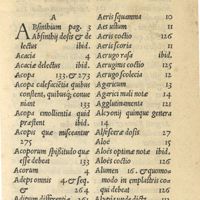 A
ABsinthium pag. 3
Absinthij dosis & de
lectus ibid.
Acacia 4
Acacia delectus ibid.
Acopa 133. & 273
Acopa calefacientia quibus
constent, quibusq; conue
niant
Acopa emollientia quid
præstent ibid.
Acopis quæ misceantur
275
Acoporum spissitudo quæ
esse debeat 133
Acorum 4
Adeps omnis 4. & seq.
& 264
Adipum differentia
Aeris squamma 10
Aes ustum 11
Aeris coctio 126
Aeris scoria 11
Aerugo rasa ibid.
Aeruginis coctio 125
Aerugo scolecia 12
Agaricum 13
Agarici mali notæ 14
Agglutinamenta 121
Alcyonij quinque genera
14
Alsiseræ dosis 27
Aloe 15
Aloes optimæ notæ ibid.
Aloes coctio 126
Alumen 16. & quomo
do in emplastris coa
qui debeat 126